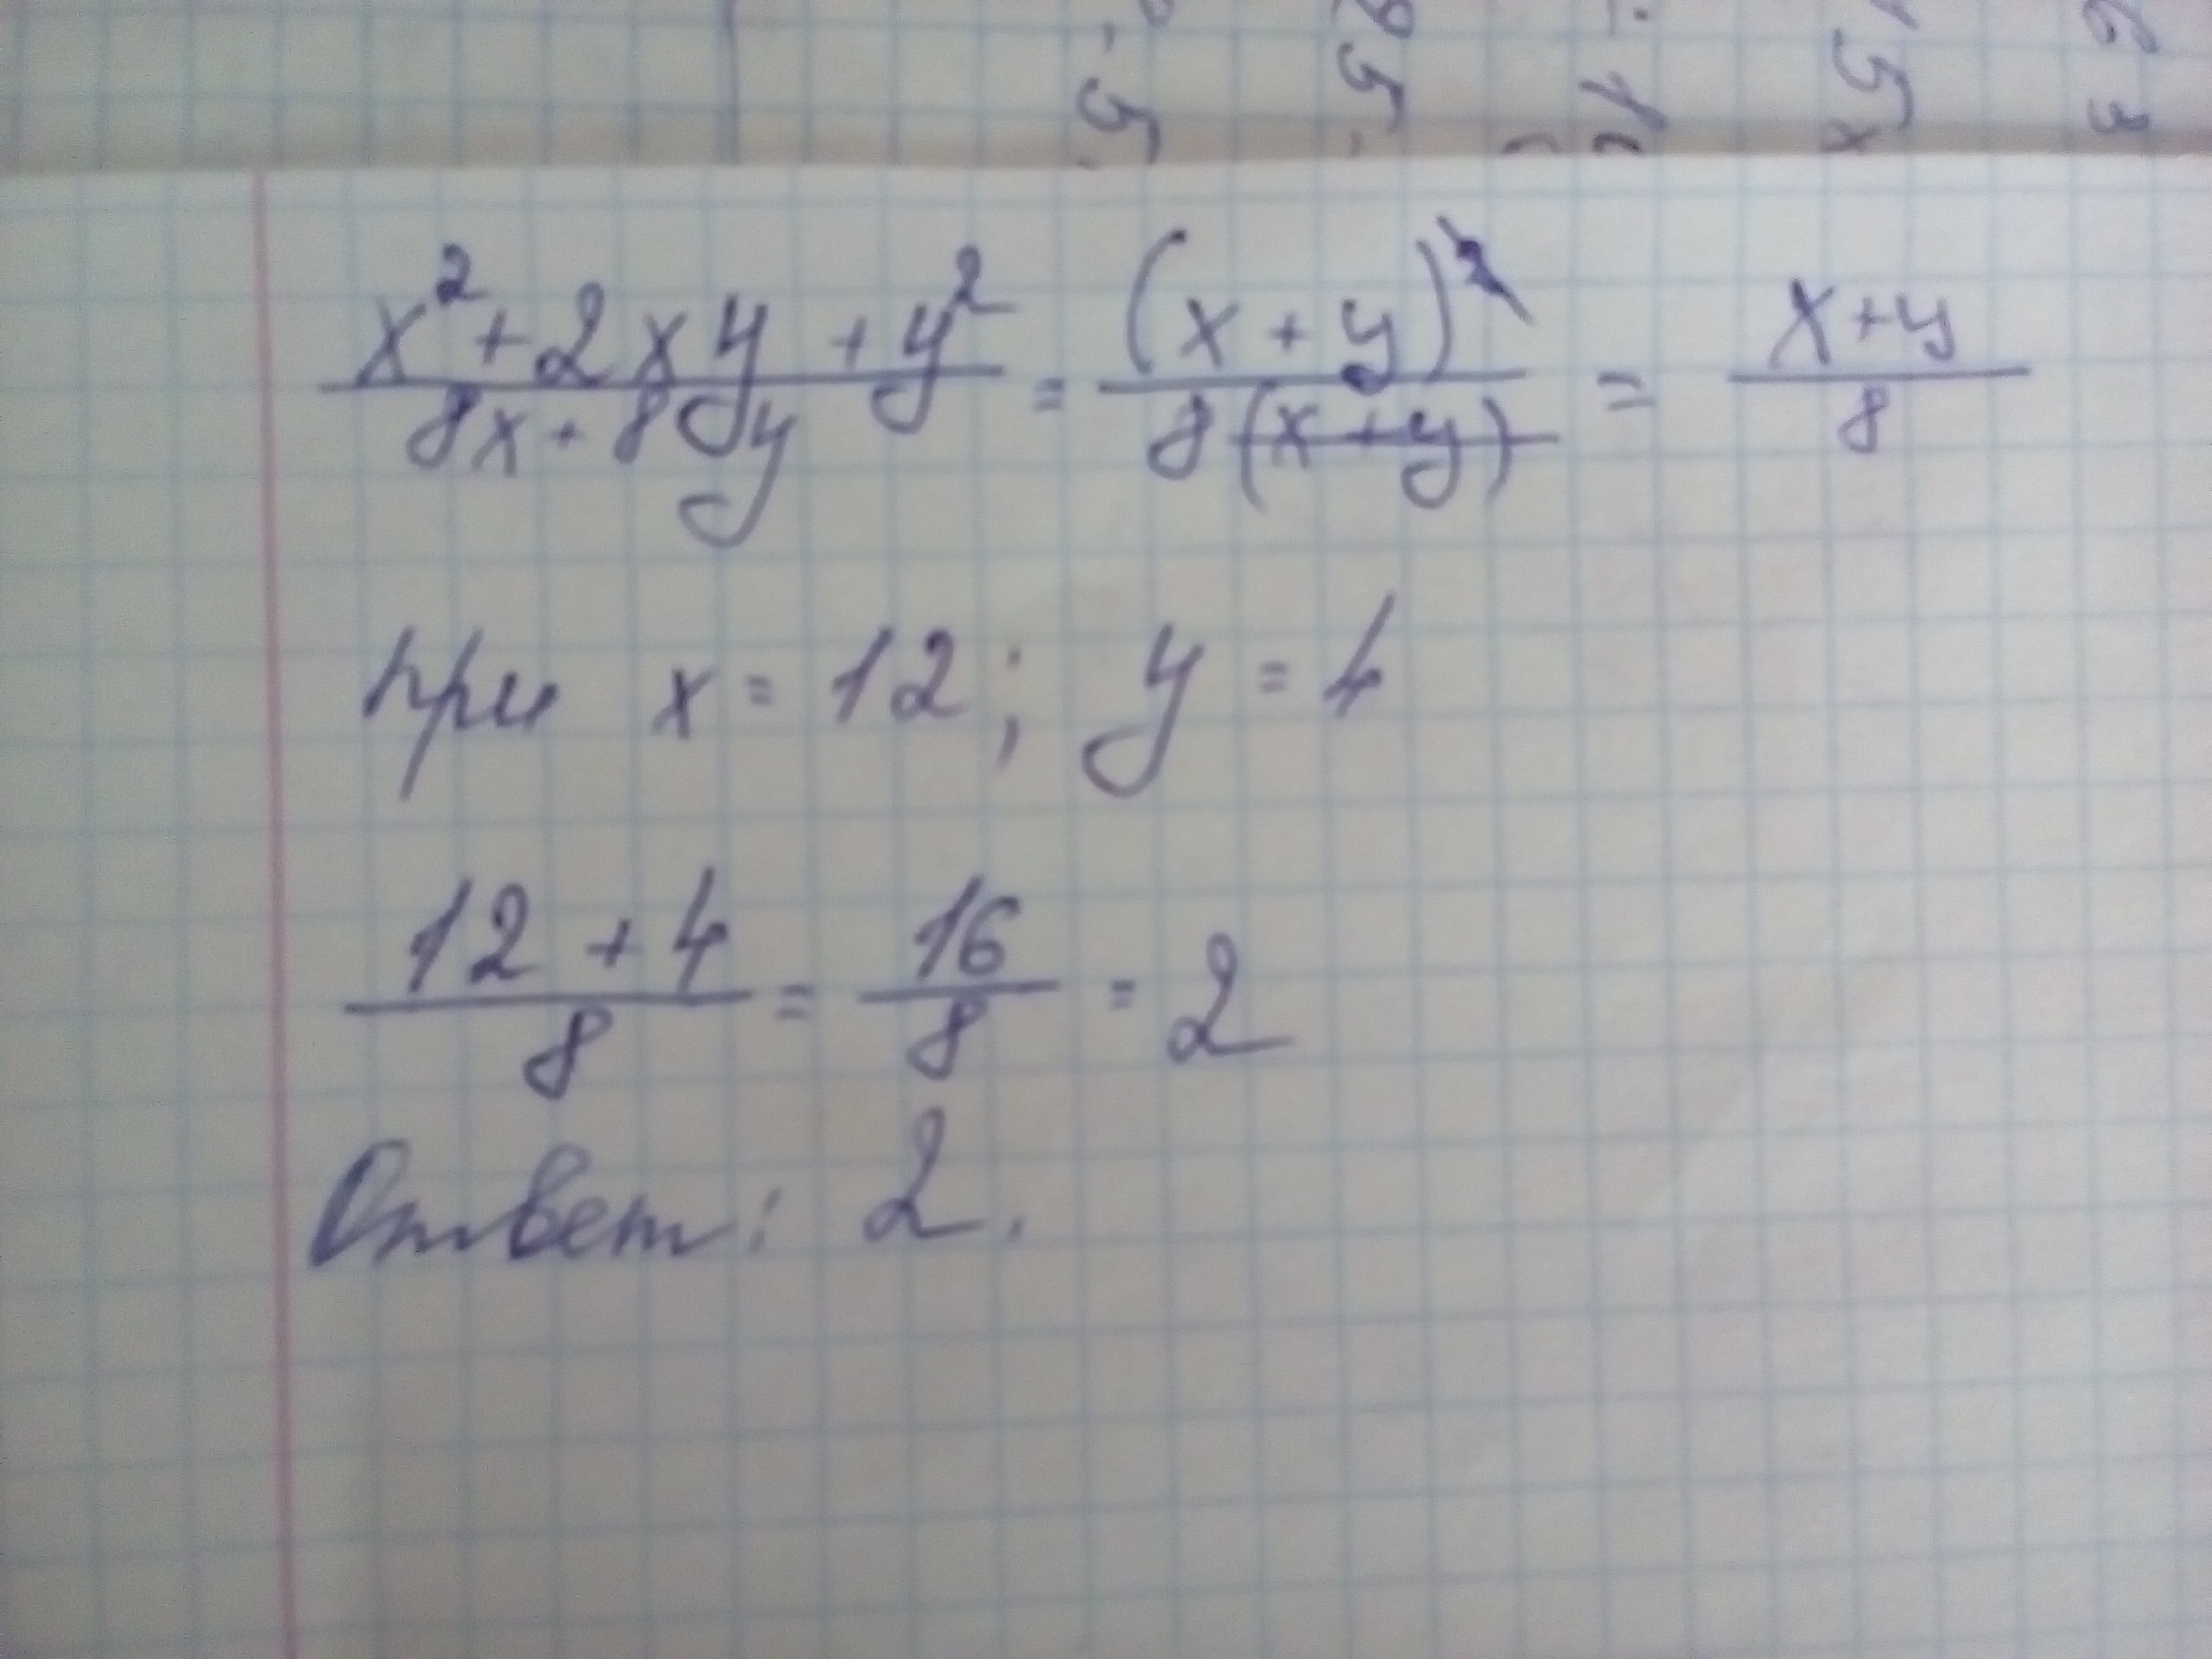 x² + 2xy + y² / 8x + 8y = (x + y)² / 8(x + y) = x + y / 8
при x = 12; y = 4
12 + 4 / 8 = 16 / 8 = 2
Ответ: 2.